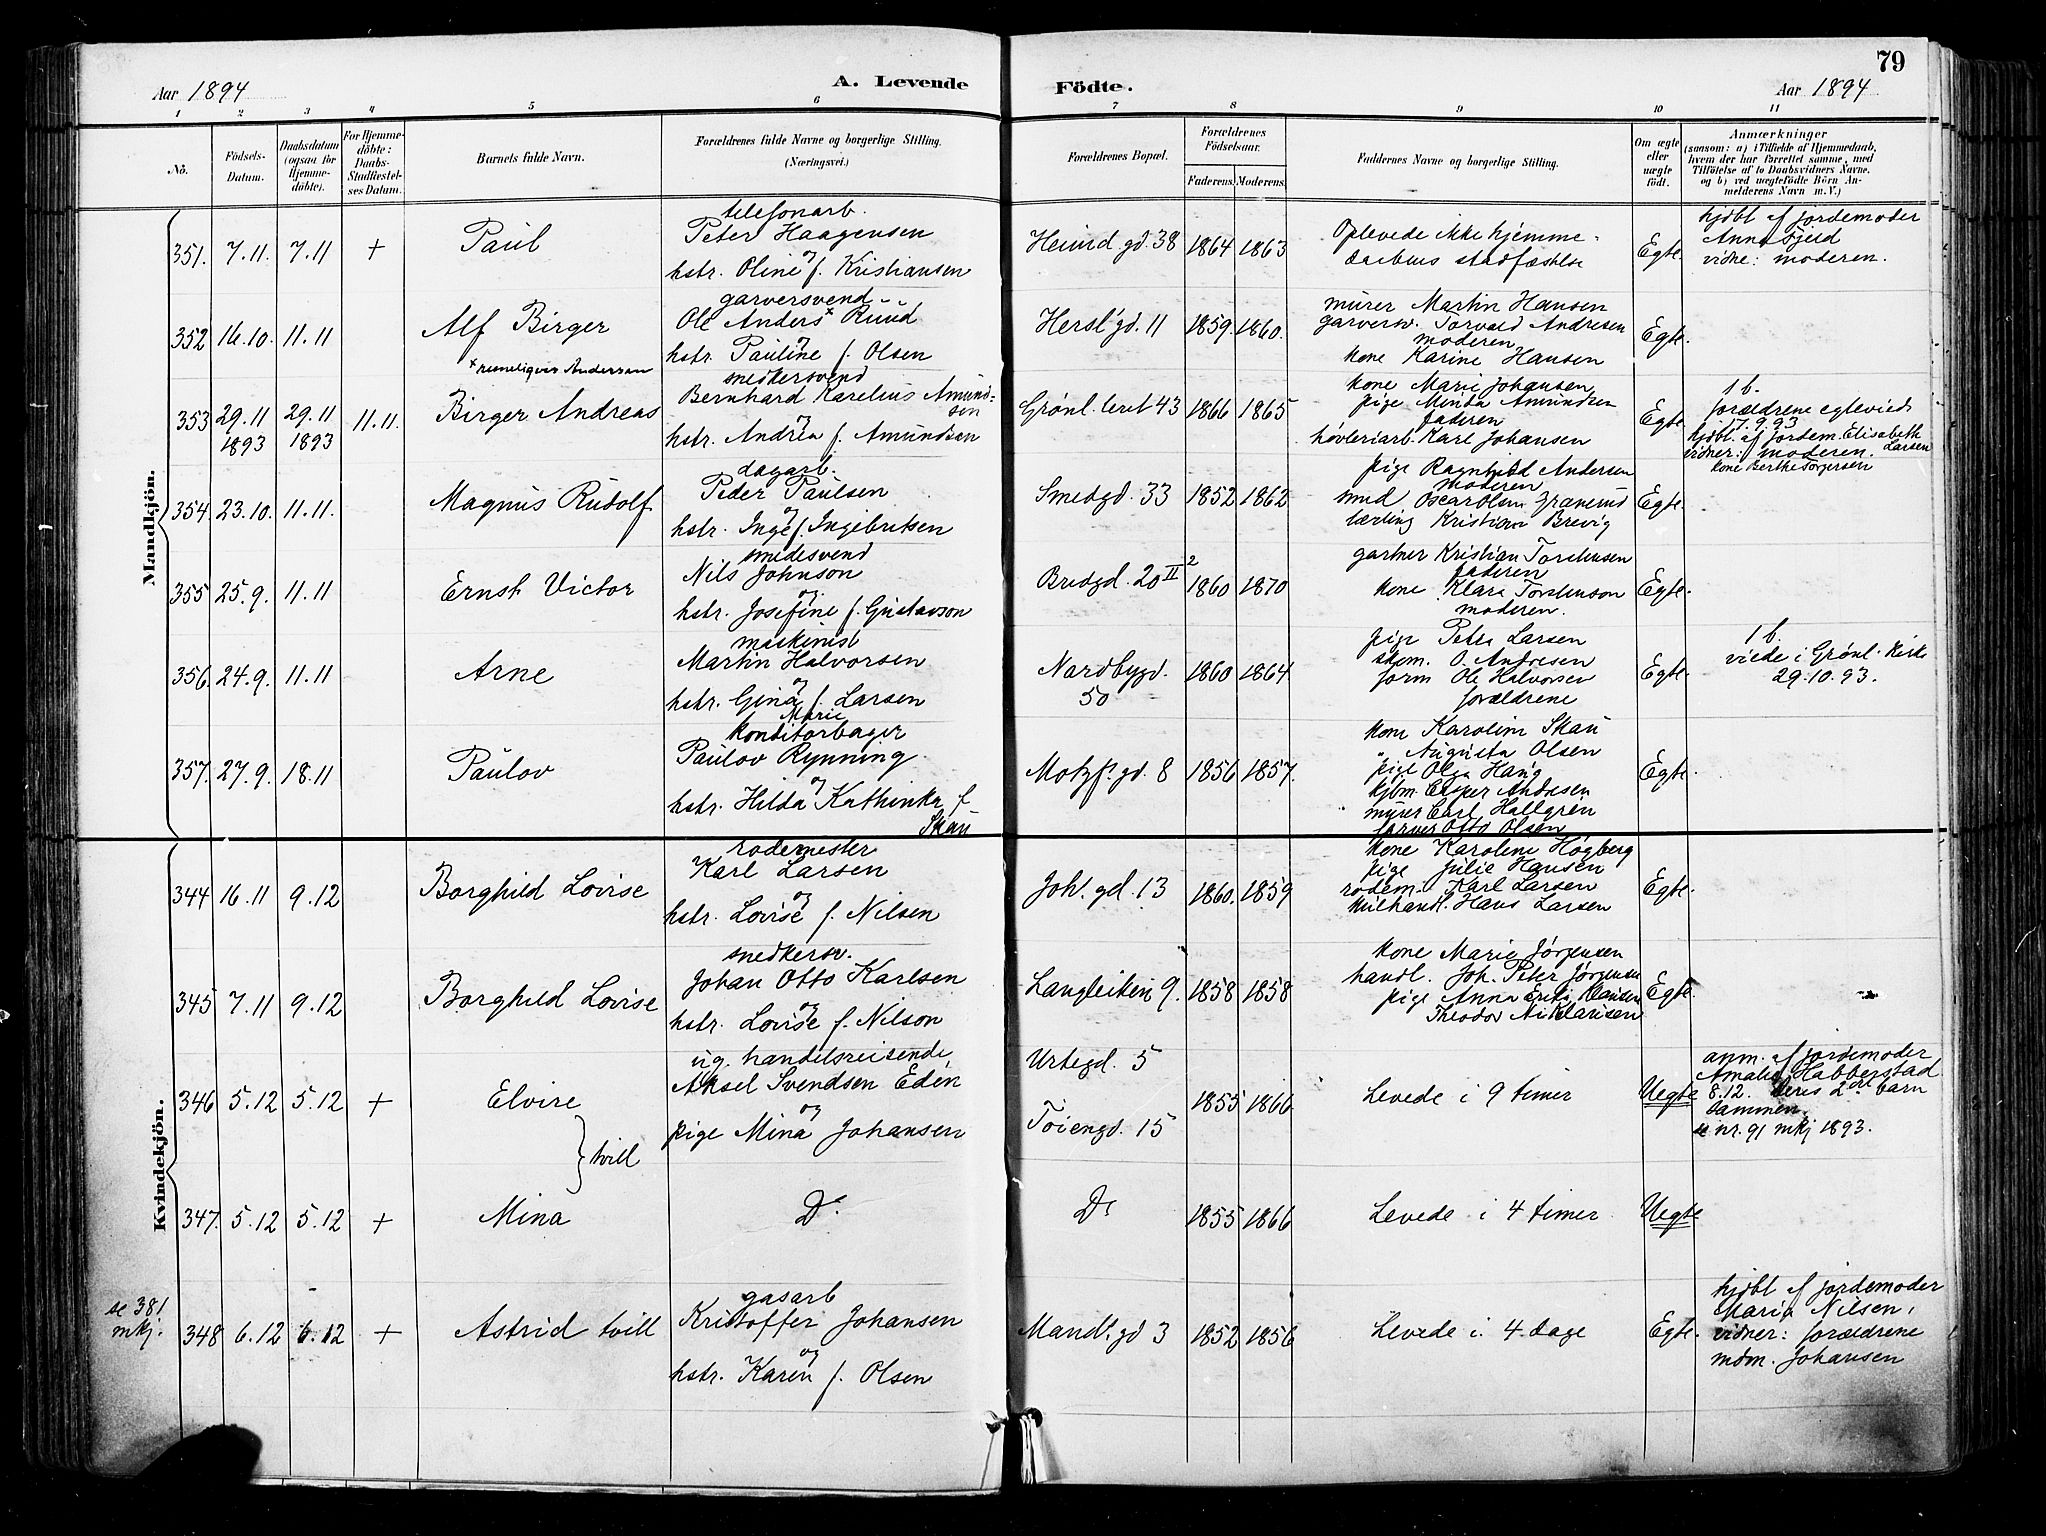 79
Aar 1894
A. Levende Födte.
Aar 1894
1 2 3 4 5 6 7 8 9 10 11
No.
Födsels-Datum.
Daabsdatum (ogsaa for Hjemme-döbte).
For Hjemme-döbte: Daabs-Stadfæstel-ses Datum.
Barnets fulde Navn.
Forældrenes fulde Navne og borgerlige Stilling. (Næringsvei.)
Forældrenes Bopæl.
Forældrenes Födselsaar.
Faderens. Moderens.
Faddernes Navne og borgerlige Stilling.
Om ægte eller uægte födt.
Anmærkninger
(saasom: a) i Tilfælde af Hjemmedaab, hvem der har forrettet samme, med Tilföielse af to Daabsvidners Navne. og b) ved uægtefödte Börn An-melderens Navn m. V.)
Mandkjön.
351. 7.11. 7.11 + Paul
telefonarb.
Peter Haagensen
og
hstr. Oline f. Kristiansen
Heimd gd. 38 1864 1863
Oplevede ikke hjemme-
daabens stadfæstelse
Egte.
hjdbt af jordemoder
Anna Fjeld
vidne: moderen.
352 16.10. 11.11 Alf Birger
x rimeligvis Andersen
garversvend
Ole Anders x Ruud
og
hstr. Pauline f. Olsen
Hersl' gd. 11 1859. 1860.
murer Martin Hansen
garversv. Torvald Andresen
moderen
kone Karine Hansen
Egte.
353 29.11 1893 29.11 1893 11.11. Birger Andreas
snedkersvend
Bernhard Karelius Amund-
sen
og
hstr. Andrea f. Amundsen
Grønl. leret 43 1866 1865
kone Marie Johansen
pige Minda Amundsen
faderen
høvleriarb. Karl Johansen
Egte.
1 b.
forældrene egteviede
7.9.93
hjdbt. af jordem. Elisabeth
Larsen
vidner: moderen.
kone Berthe Torgersen
354 23.10. 11.11. Magnus Rudolf
dagarb.
Peder Paulsen
og
hstr. Inge f. Ingebretsen
Smedgd. 33 1852 1862
pige Ragnhild Andersen
moderen
smed Oscar Olsen
lærling Kristian Brevig
Egte.
355 25.9. 11.11 Ernst Victor
smedesvend
Nils Johnson
og
hstr. Josefine f. Gustavson
Bredgd. 20 II 2 1860 1870
gartner Kristian Torstensen
faderen
kone Klara Torstenson
moderen.
Egte.
356. 24.9. 11.11 Arne
maskinist
Martin Halvorsen
og
hstr. Gina f. Larsen
Marie
Nordbygd. 50 1860 1864
pige Petra Larsen
skom. O. Andresen
form Ole Halvorsen
forældrene
Egte.
1 b.
viede i Grønl. kirke
29.10.93.
357. 27.9. 18.11 Paulov
konditorbager
Paulov Rynning.
og
hstr. Hilda Kathinka f
Skau
Motzf. gd. 8 1856 1857.
kone Karoline Skau
" Augusta Olsen
pige Olga Haug
kjbm. Casper Andresen
murer Carl Hallgren
farver Otto Olsen
Egte.
Kvindekjön.
344 16.11 9.12 Borghild Lovise
rodemester
Karl Larsen
og
hstr. Lovise f. Nilsen
Joh'. gd. 13 1860. 1859
kone Karoline Høgberg
pige Julie Hansen
rodem. Karl Larsen
kulhandl. Hans Larsen
Egte.
345 7.11 9.12 Borghild Lovise
snedkersv.
Johan Otto Karlsen
og
hstr. Lovise f. Nilson
Langleiken 9. 1858 1858
kone Marie Jørgensen
handl. Joh. Peter Jørgensen
pige Anna Klausen
Theodor Klausen
Egte.
346 5.12 5.12 + Elvire
} tvill
ug. handelsreisende
Aksel Svendsen Edén
og
pige Mina Johansen
Urtegd. 5
Tøiengd. 15
1855 1866
Levede i 9 timer
Uegte
anm. af jordemoder
Amalie Habberstad
8.12. Deres 2det barn
sammen.
se nr. 91 mkj 1893.
347. 5.12 5.12 + Mina
Do
Do
1855 1866
Levede i 4 timer
Uegte
se 381
mkj.
348 6.12 6.12 + Astrid tvill
gasarb
Kristoffer Johansen
og
hstr. Karen f. Olsen
Mandl. gd 3 1852 1856
Levede i. 4 dage
Egte.
hjdbt af jordemoder
Maria Nilsen,
vidner: forældrene
mdm. Johansen